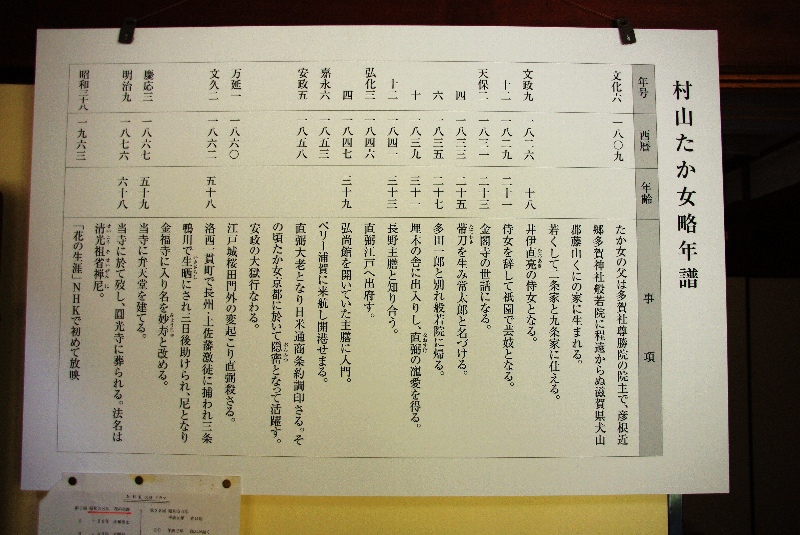 村山たか女略年譜
年号 西暦 年齢 事項
文化六 一八〇九 たか女の父は多賀社尊勝院の院主で、彦根近
郷多賀神社般若院に程遠からぬ滋賀県犬山
郡藤山くにの家に生まれる。
若くして一条家と九条家に仕える。
文政九 一八二六 十八 井伊直亮の侍女となる。
十二 一八二九 二十一 侍女を辞して祇園で芸妓となる。
天保二 一八三一 二十三 金閣寺の世話になる。
四 一八三三 二十五 帯刀を生み常太郎と名づける。
六 一八三五 二十七 多田一郎と別れ般若院に帰る。
十 一八三九 三十一 埋木の舎に出入りし、直弼の寵愛を得る。
十二 一八四一 三十三 長野主膳と知り合う。
弘化三 一八四六 直弼江戸へ出府す。
四 一八四七 三十九 弘尚館を開いていた主膳に入門。
嘉永六 一八五三 ペリー浦賀に来航し開港せまる。
安政五 一八五八 直弼大老となり日米通商条約調印さる。そ
の頃たか女京都に於いて隠密となって活躍す。
安政の大獄行なわる。
万延一 一八六〇 江戸城桜田門外の変起こり直弼殺さる。
文久二 一八六二 五十八 洛西一貫町で長州・土佐藩激徒に捕われ三条
鴨川で生晒にされ三日後助けられ、尼となり
金福寺に入り名を妙寿と改める。
慶応三 一八六七 五十九 当寺に弁天堂を建てる。
明治九 一八七六 六十八 当寺に於て歿し、圓光寺に葬られる。法名は
清光祖省禅尼。
昭和三十八 一九六三 「花の生涯」NHKで初めて放映